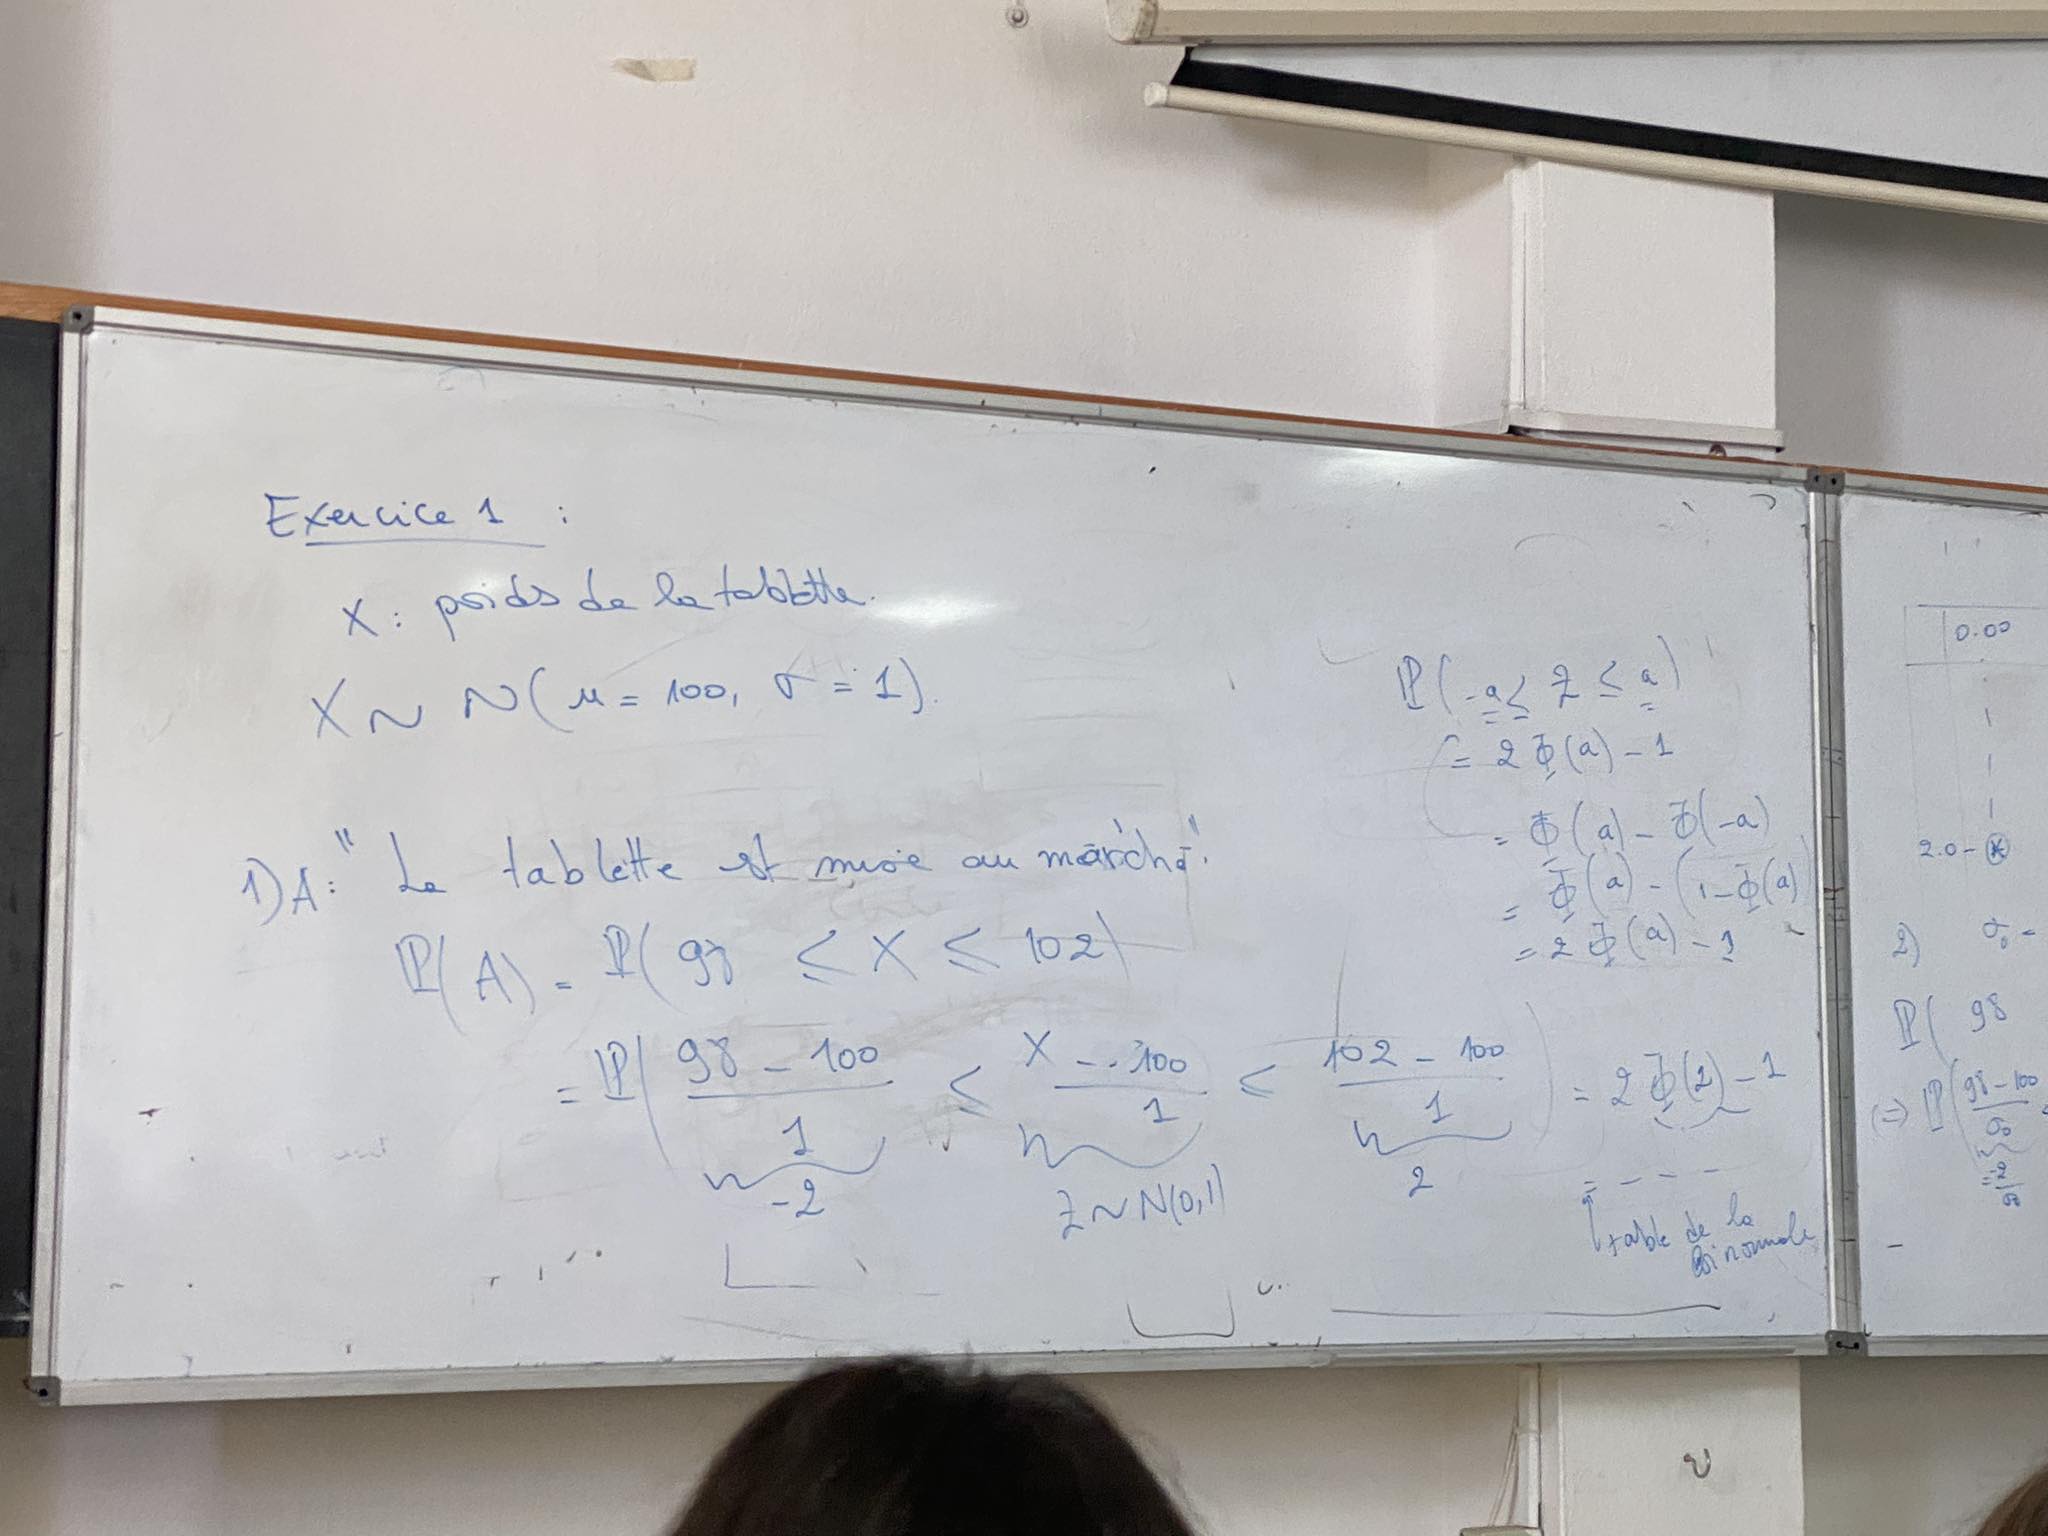 Exercice 1 :
X : poids de la tablette.
X ~ N(μ = 100, σ = 1).
1) A : " La tablette est mise au marché".
P(A) = P(98 ≤ X ≤ 102)
= P( (98 - 100)/1 ≤ (X - 100)/1 ≤ (102 - 100)/1 ) = 2Φ(2) - 1
-2 Z ~ N(0,1) 2
= - - -
table de la
loi normale
P(-a ≤ Z ≤ a)
= 2Φ(a) - 1
= Φ(a) - Φ(-a)
= Φ(a) - (1 - Φ(a)
= 2Φ(a) - 1
0.00
2.0
2) σ₀ =
P( 98
(=) P( (98 - 100)/σ₀
= -2/σ₀